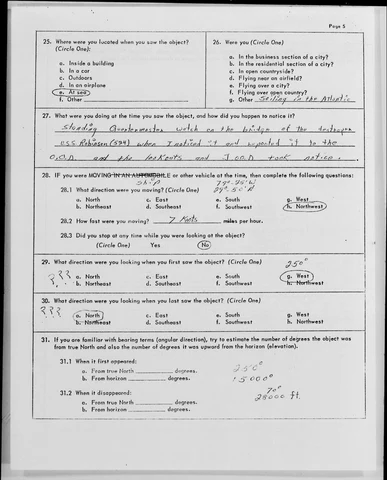 Page 5
25. Where were you located when you saw the object? (Circle One):
a. Inside a building
b. In a car
c. Outdoors
d. In an airplane
e. At sea
f. Other
26. Were you (Circle One)
a. In the business section of a city?
b. In the residential section of a city?
c. In open countryside?
d. Flying near an airfield?
e. Flying over a city?
f. Flying over open country?
g. Other Sailing in the Atlantic
27. What were you doing at the time you saw the object, and how did you happen to notice it?
Standing Quartermaster watch on the bridge of the destroyer
U.S.S. Robinson (594) when I noticed it and reported it to the
O.O.D. and the lookouts and J.O.O.D took notice.
28. IF you were MOVING IN AN AUTOMOBILE or other vehicle at the time, then complete the following questions:
Ship
28.1 What direction were you moving? (Circle One)
a. North c. East e. South g. West
b. Northeast d. Southeast f. Southwest h. Northwest
28.2 How fast were you moving? 7 Knots miles per hour.
28.3 Did you stop at any time while you were looking at the object?
(Circle One) Yes No
29. What direction were you looking when you first saw the object? (Circle One) 250°
??? a. North c. East e. South g. West
b. Northeast d. Southeast f. Southwest h. Northwest
30. What direction were you looking when you last saw the object? (Circle One)
??? a. North c. East e. South g. West
b. Northeast d. Southeast f. Southwest h. Northwest
31. If you are familiar with bearing terms (angular direction), try to estimate the number of degrees the object was
from true North and also the number of degrees it was upward from the horizon (elevation).
31.1 When it first appeared:
a. From true North degrees. 250°
b. From horizon degrees.
31.2 When it disappeared:
a. From true North degrees. 70°
b. From horizon degrees. 28000 ft.